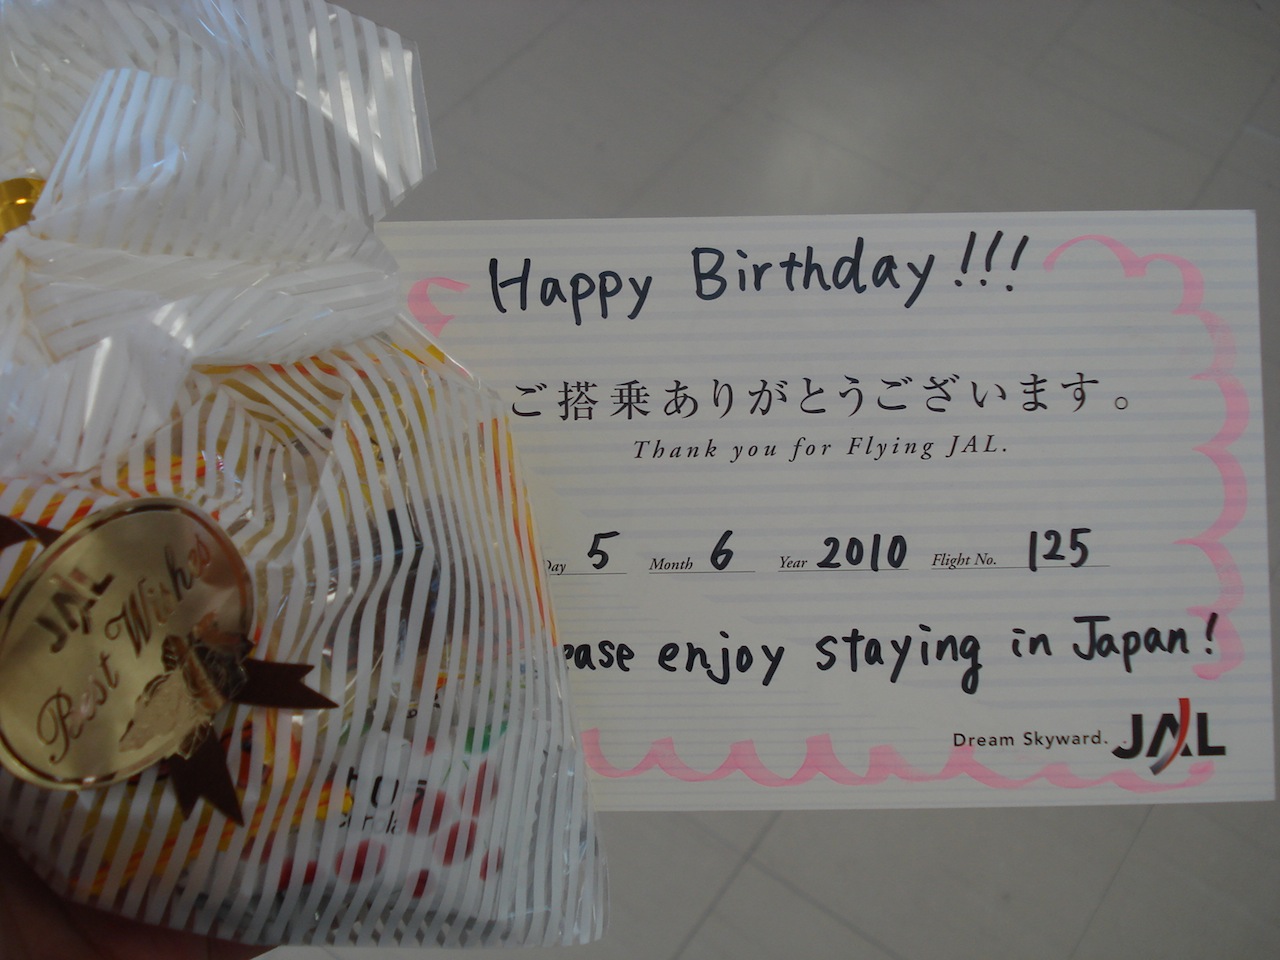 Happy Birthday!!!
ご搭乗ありがとうございます。
Thank you for Flying JAL.
Day 5 Month 6 Year 2010 Flight No. 125
enjoy staying in Japan!
Dream Skyward. JAL
JAL
Best Wishes